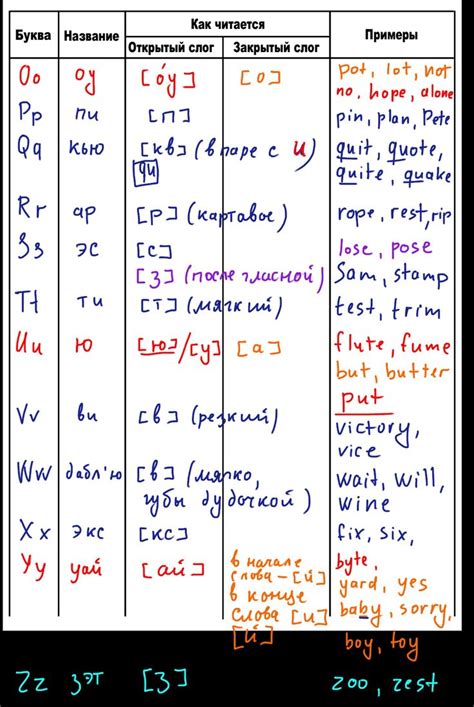 Буква Название Как читается Примеры
Открытый слог Закрытый слог
Oo оу [óу] [о] pot, lot, not
no, hope, alone
Pp пи [п] pin, plan, Pete
Qq кью [кв] (в паре с u) quit, quote,
qu quite, quake
Rr ар [р] (картавое) rope, rest, rip
Ss эс [с] lose, pose
[з] (после гласной) Sam, stamp
Tt ти [т] (мягкий) test, trim
Uu ю [ю]/[у] [а] flute, fume
but, butter
put
Vv ви [в] (резкий) victory,
vice
Ww дабл'ю [в] (мягко, wait, will,
губы дудочкой) wine
Xx экс [кс] fix, six,
Yy уай [ай] в начале byte,
слова – [й] yard, yes
в конце baby, sorry,
слова [и]
[й] boy, toy
Zz зэт [з] zoo, zest